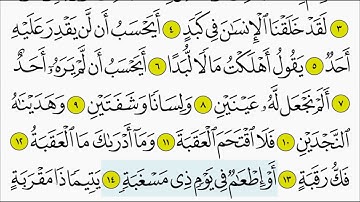 ٣ لَقَدْ خَلَقْنَا ٱلْإِنسَٰنَ فِي كَبَدٍ ٤ أَيَحْسَبُ أَن لَّن يَقْدِرَ عَلَيْهِ
أَحَدٌ ٥ يَقُولُ أَهْلَكْتُ مَالًا لُّبَدًا ٦ أَيَحْسَبُ أَن لَّمْ يَرَهُۥٓ أَحَدٌ
٧ أَلَمْ نَجْعَل لَّهُۥ عَيْنَيْنِ ٨ وَلِسَانًا وَشَفَتَيْنِ ٩ وَهَدَيْنَٰهُ
ٱلنَّجْدَيْنِ ١٠ فَلَا ٱقْتَحَمَ ٱلْعَقَبَةَ ١١ وَمَآ أَدْرَىٰكَ مَا ٱلْعَقَبَةُ ١٢
فَكُّ رَقَبَةٍ ١٣ أَوْ إِطْعَٰمٌ فِي يَوْمٍ ذِي مَسْغَبَةٍ ١٤ يَتِيمًا ذَا مَقْرَبَةٍ